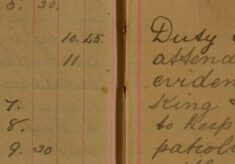 5. 30.
10.45
11
7.
8.
9. 30
Duty
attend
eviden
King
to keep
patrol